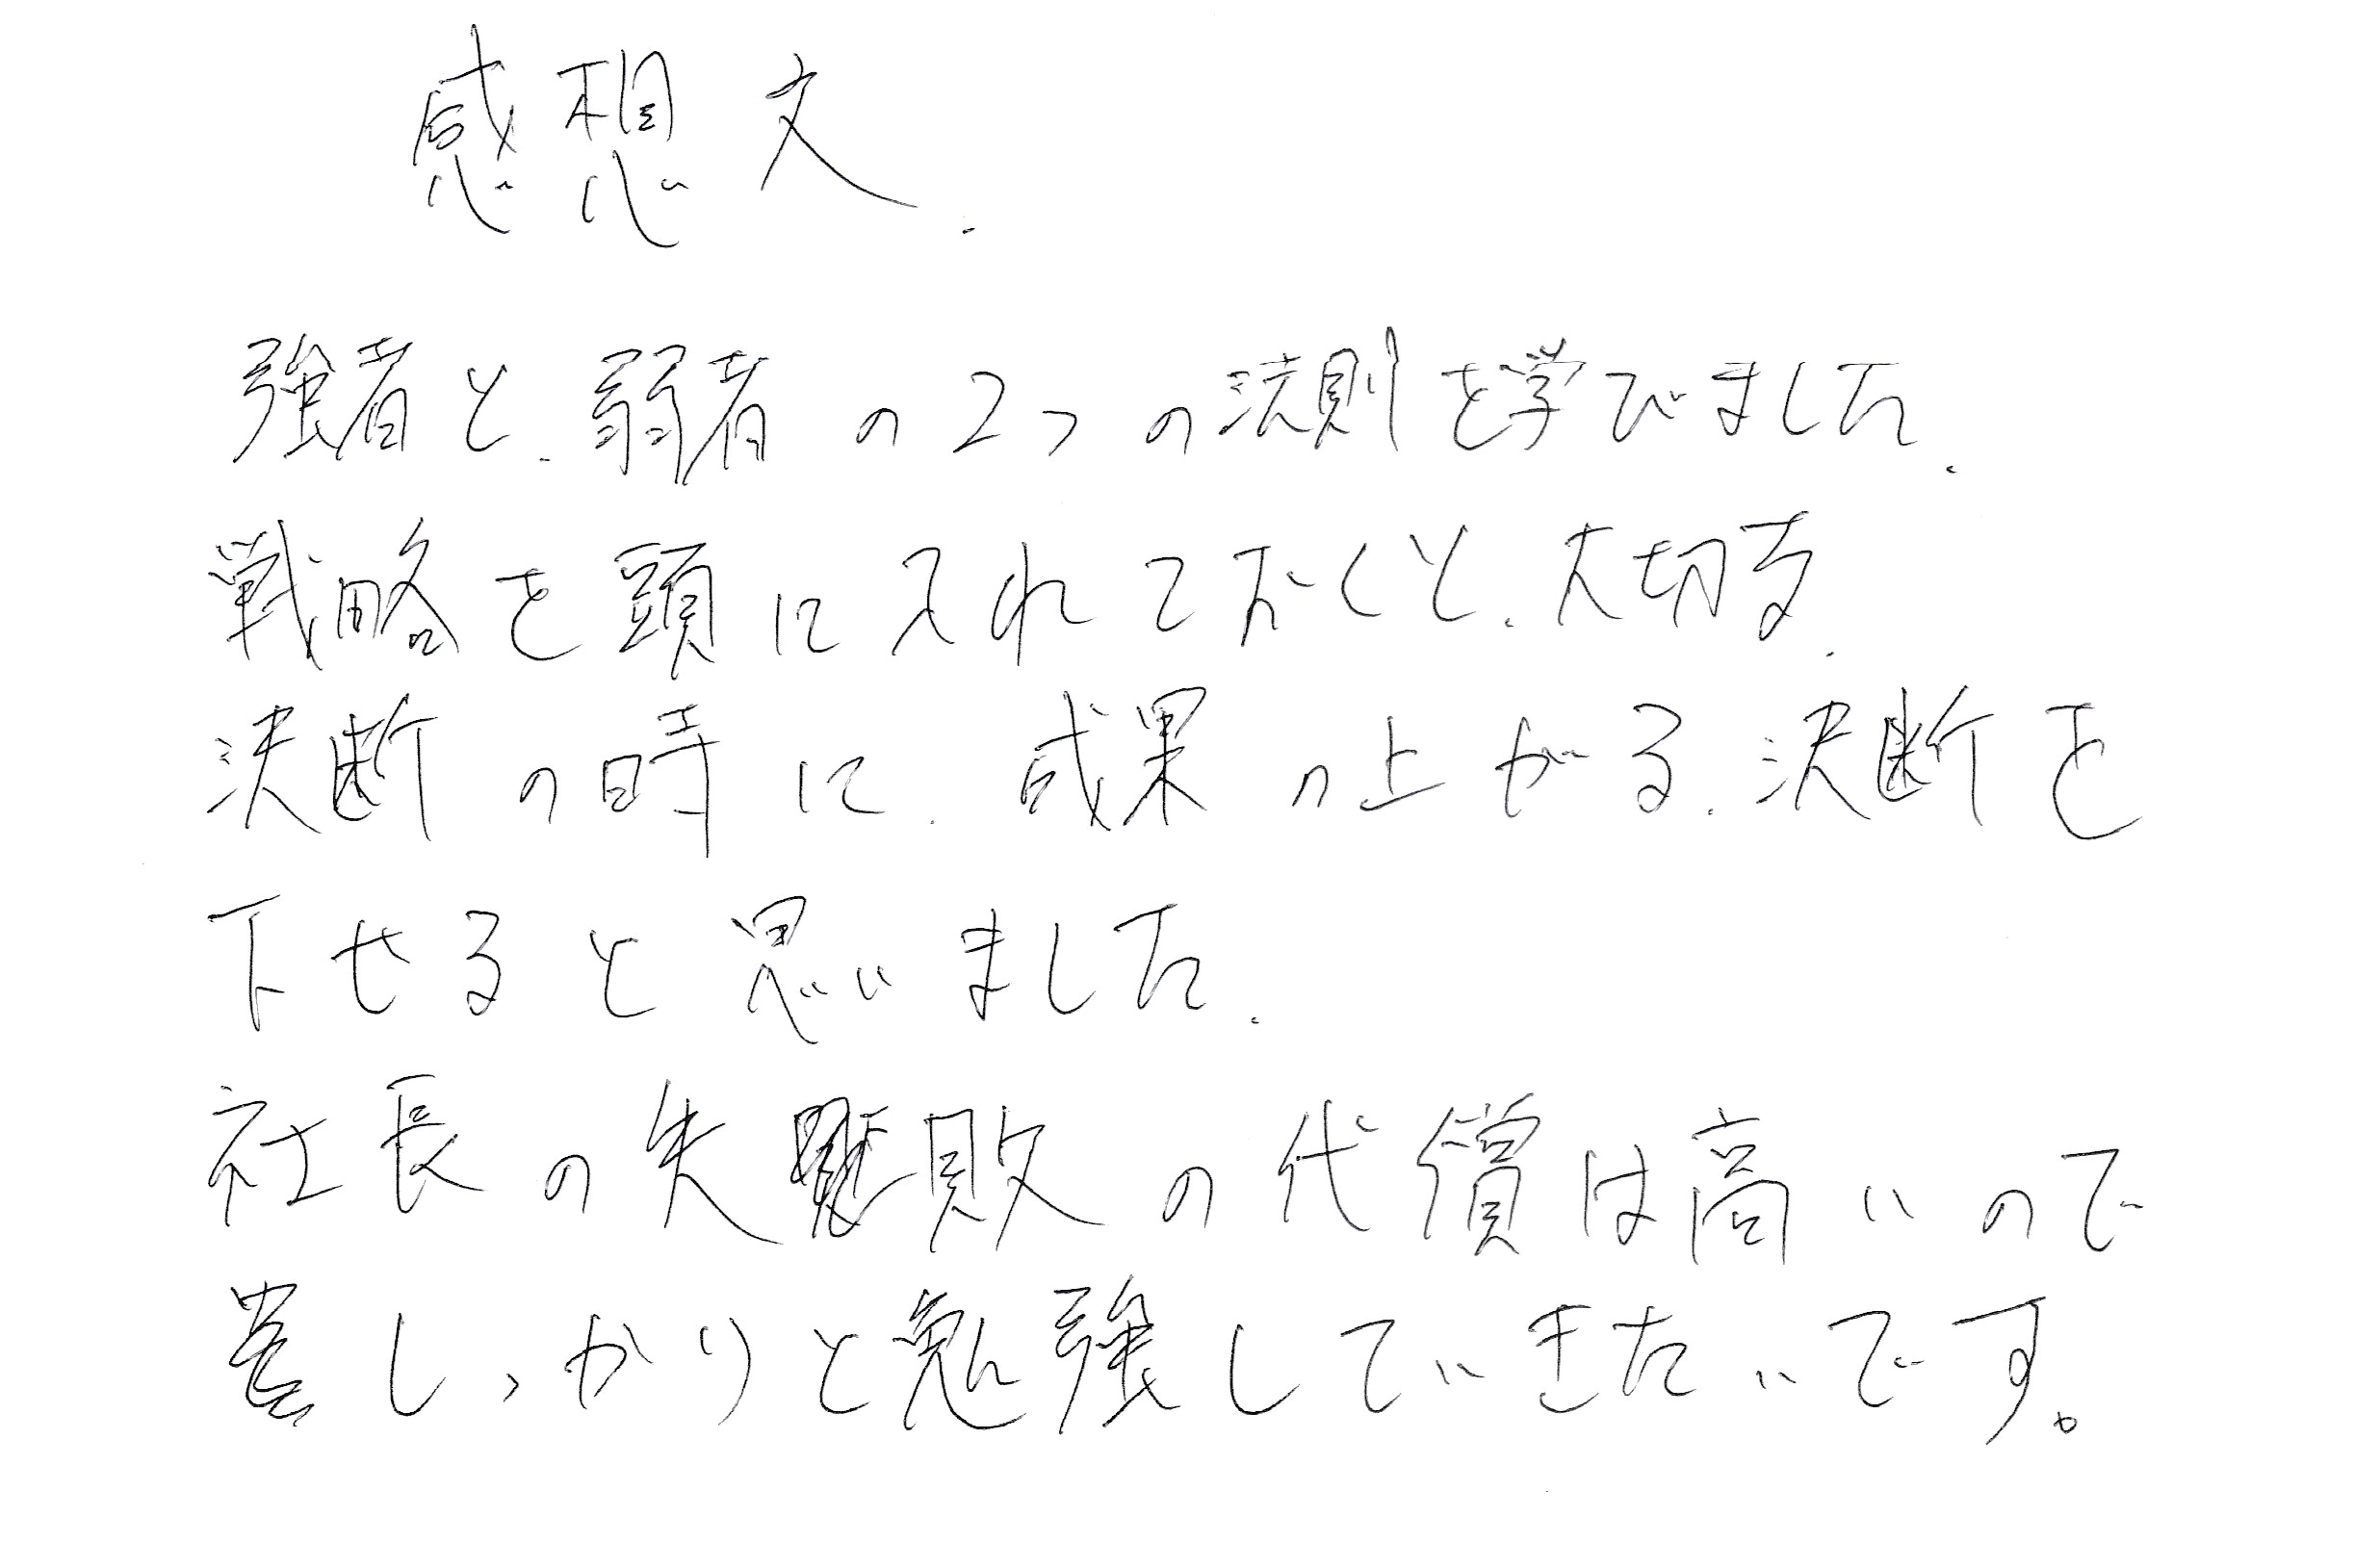 感想文.
強者と、弱者の2つの法則を学びました.
戦略を頭に入れておくと、大切な、
決断の時に、成果の上がる、決断を
下せると思いました.
社長の失敗の代償は高いので
しっかりと勉強していきたいです。